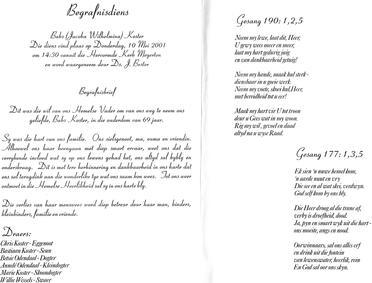 Begrafnisdiens
Babs (Jacoba Wilhelmina) Koster
Die diens sal plaas op Donderdag, 10 Mei 2001
om 14:30 vanuit die Hervormde Kerk Meyerton
en word waargeneem deur Ds. J. Botter
Begrafnisbrief
Dit was die wil van ons Hemelse Vader om van ons weg te neem ons
geliefde, Babs, Koster, in die ouderdom van 69 jaar.
Sy was die hart van ons familie. Ons eielgenoot, ma, ouma en vriendin.
Alhoewel ons haar heengaan met diep smart ervaar, weet ons dat die
verrykende invloed wat sy op ons lewens gehad het, ons altyd sal bybly en
ondersteep. Dit is met ware herinnering en dankbaarheid in ons harte dat
ons sal terugdink aan die wonderlike tye wat ons saam kon wees. Tot ons weer
ontmoet in die Hemelse Heerlikheid sal sy in ons harte bly.
Die verlies van haar menswees word diep betreur deur haar man, kinders,
kleinkinders, familie en vriende.
Draers:
Chris Koster - Eggenoot
Bastiaan Koster - Seun
Betsie Odendaal - Dogter
Anneli Odendaal - Kleindogter
Marie Koster - Skoondogter
Willie Wessels - Swaer
Gesang 190: 1,2,5
Neem my lewe, laat dit, Heer,
U gewy wees meer en meer,
laat my hart gedurig juig
en van dankbaarheid getuig!
Neem my hande, maak hul sterk -
diensbaar in u goeie werk.
Neem my voete, stuur hul, Heer,
met bereidheid tot u eer!
Maak my hart vir U tot troon
deur u Gees wat in my woon.
Rig my wil, gevoel en daad
altyd na u wyse Raad.
Gesang 177: 1,3,5
Ek sien 'n nuwe hemel kom,
'n aarde nuut en vry
Die see en al wat skei, verdwyn.
God self kom by ons bly.
Die Heer droog al die trane af,
verby is droefheid, dood.
Ja, pyn en smart wyk uit die hart -
ons moeite, angs en nood.
Oorwinnaars, sal ons alles erf
en drink uit die fontein
van lewenswater, heerlik, rein
En God sal oor ons skyn.